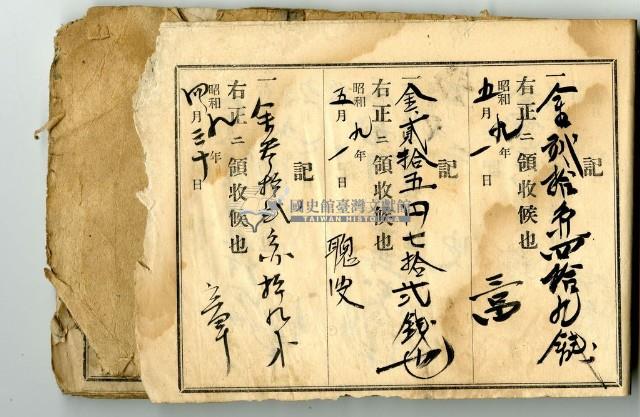 記
一金貳拾

四拾九錢
右正ニ領收候也
昭和九年
五月一日
記
一金貳拾五円七拾貳錢也
右正ニ領收候也
昭和九年
五月一日
聰波
記
一金
右正ニ領收候也
昭和九年
四月三十日
國史館臺灣文獻館
TAIWAN HISTORICA